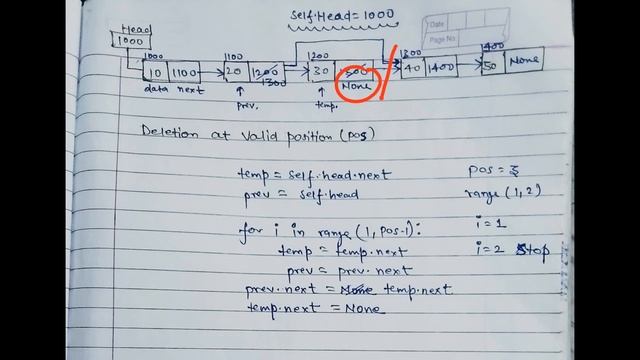 Self.Head = 1000
Head
1000
Date
Page No.
1000 1100 1200 1300 1400
10 1100 20 1200 30 1300 40 1400 50 None
1300 None
data next prev. temp.
Deletion at valid position (pos)
temp = self.head.next pos = 3
prev = self.head range (1,2)
for i in range (1, pos-1): i = 1
temp = temp.next i = 2 Stop
prev = prev.next
prev.next = None temp.next
temp.next = None